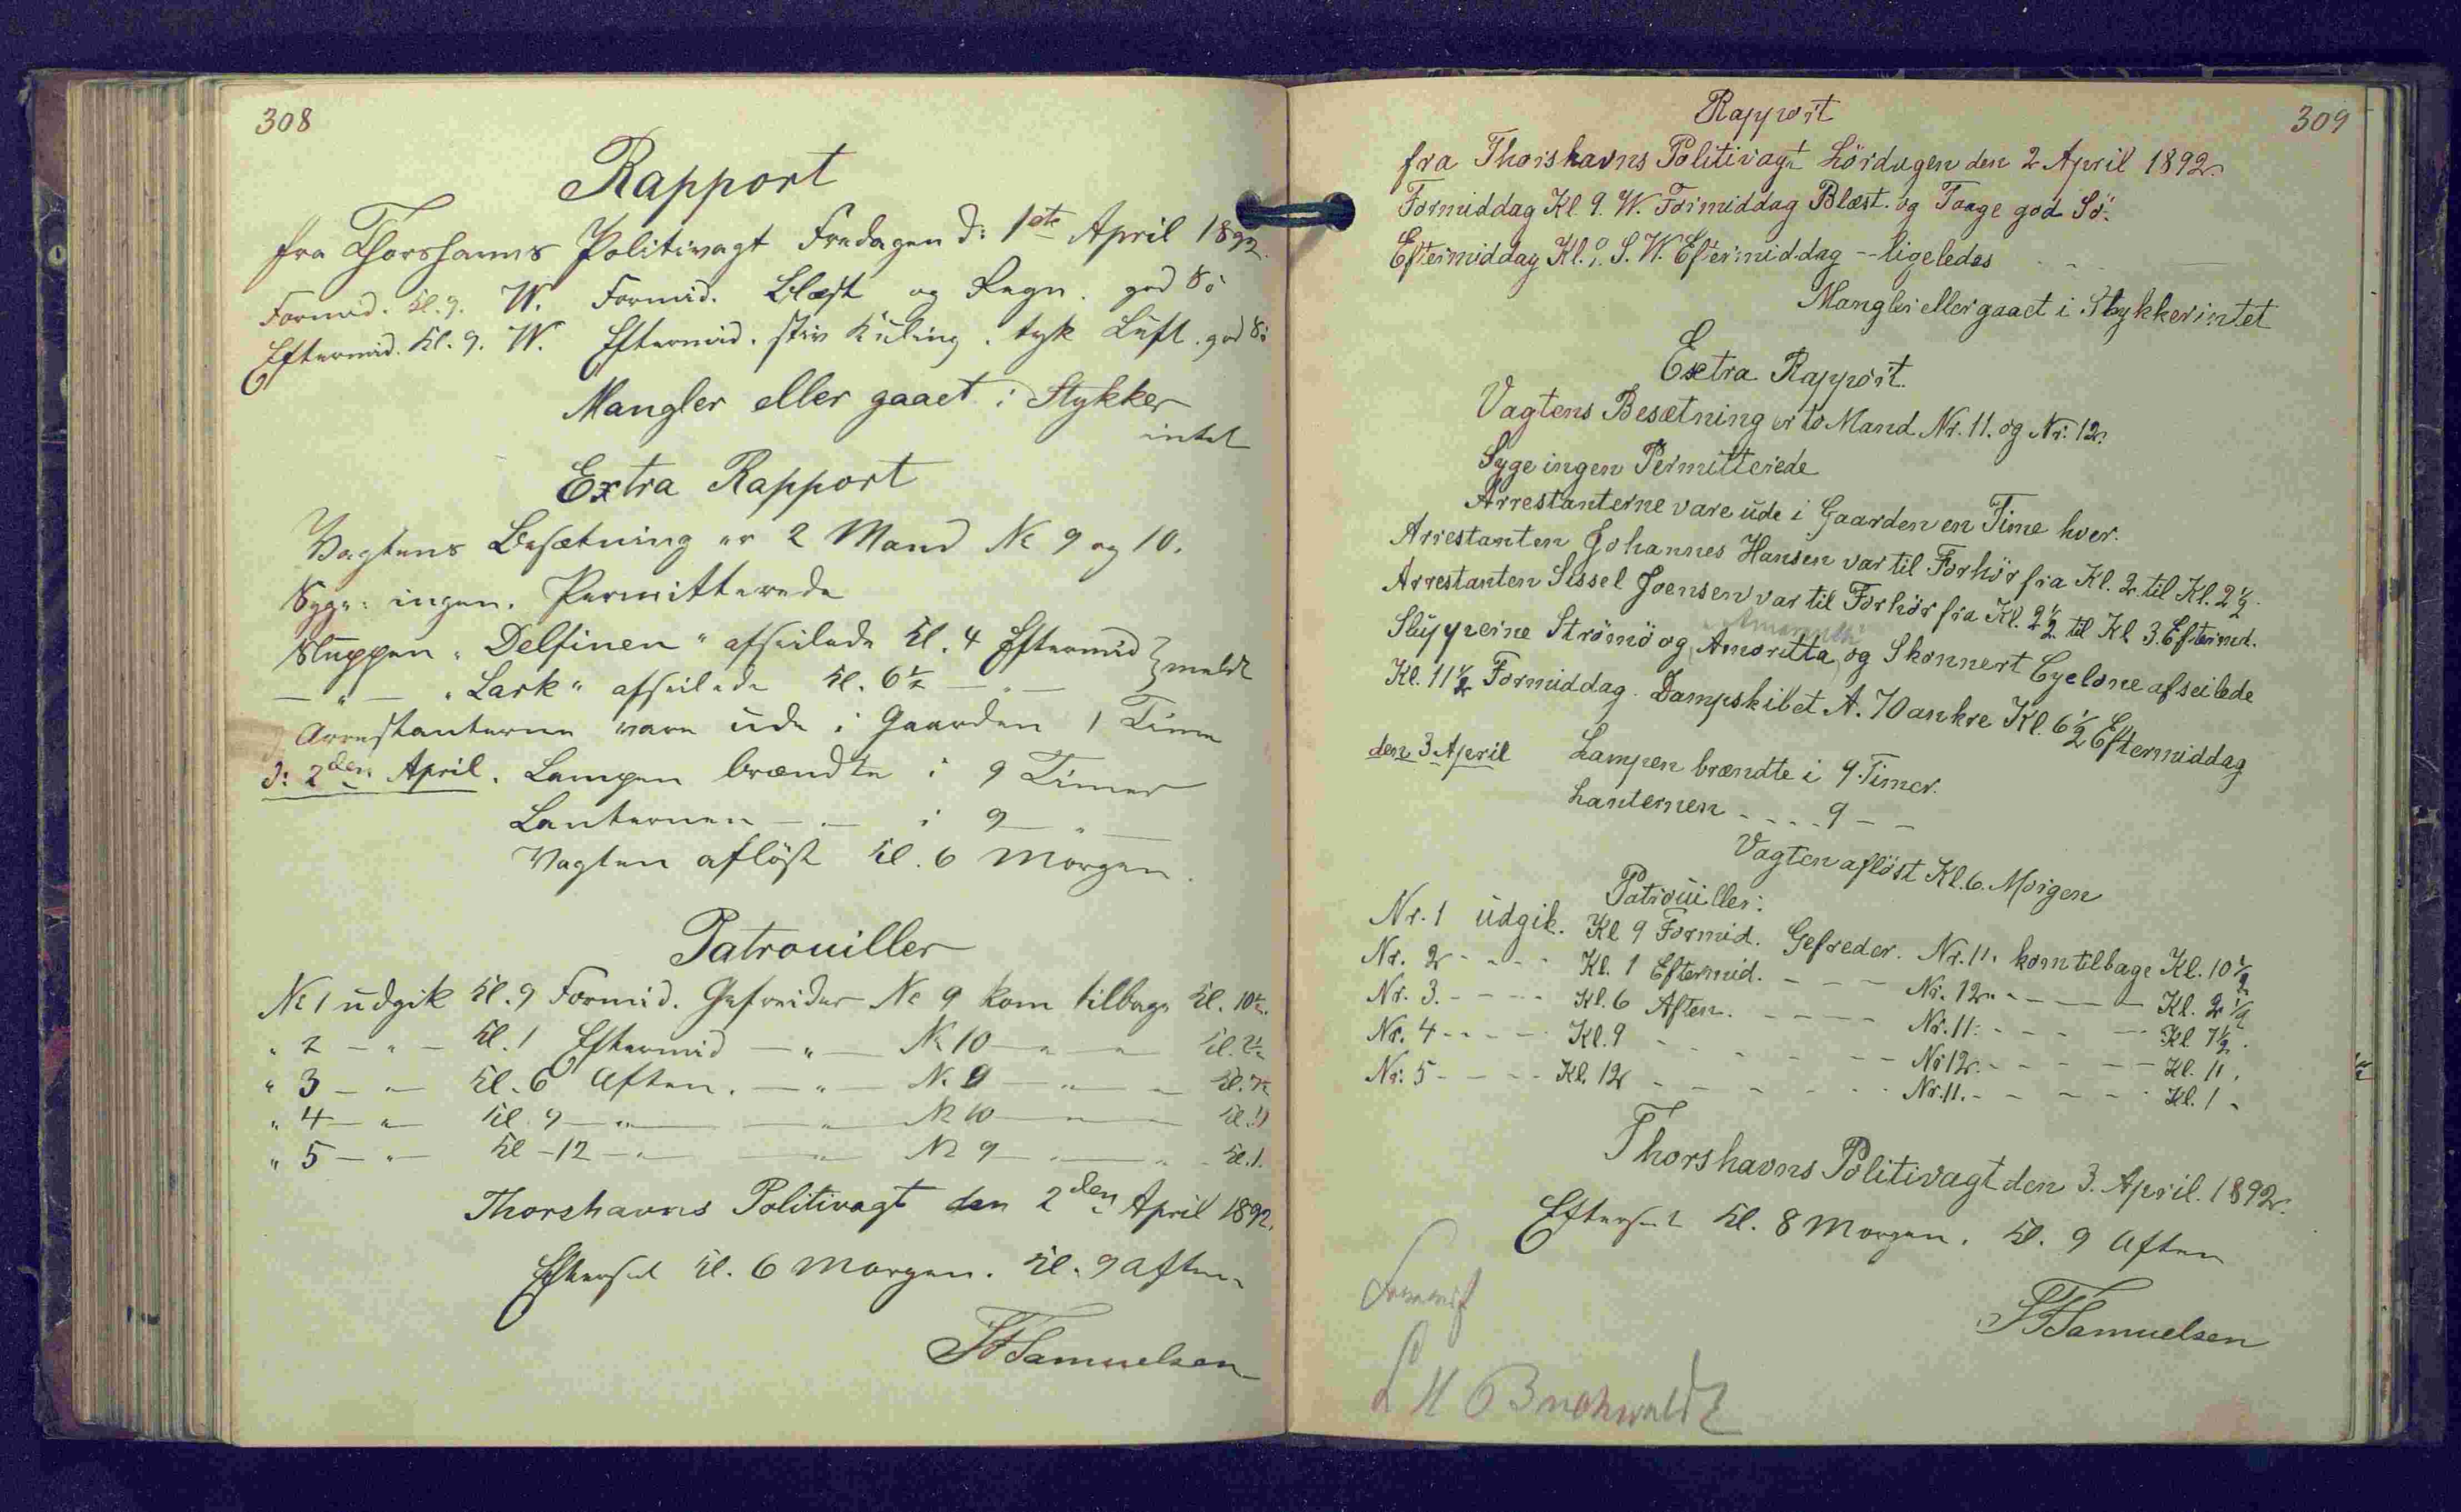 308
Rapport
fra Thorshavns Politivagt Fredagen d: 1ste April 1892.
Formid. Kl. 9. W. Formid. Blæst og Regn. god Sö
Eftermid. Kl. 9. W. Eftermid. stiv Kuling. tyk Luft. god Sö
Mangler eller gaaet i Stykker
intet
Extra Rapport
Vagtens Besætning er 2 Mand No 9 og 10.
Syge: ingen. Permitterede
Sluppen "Delfinen" afseilede Kl. 4 Eftermid } meldt
— " — "Lark" afseilede Kl. 6½ — " —
Arrestanterne vare ude i Gaarden 1 Time
d: 2den April. Lampen brændte i 9 Timer
Lanternen — " — i 9 — " —
Vagten aflöst Kl. 6 Morgen.
Patrouiller
No 1 udgik Kl. 9 Formid. Gefreider No 9 kom tilbage Kl. 10½.
" 2 — " — Kl. 1 Eftermid — " — No 10 — " — " Kl. 2½
" 3 — " — Kl. 6 Aften. — " — No 9 — " — Kl. 7½
" 4 — " — Kl. 9 — " — — " — No 10 — " — Kl. 11
" 5 — " — Kl - 12 — " — — " — No 9 — " — " - Kl. 1.
Thorshavns Politivagt den 2den April 1892.
Efterset Kl. 6 Morgen. Kl. 9 Aften
Samuelsen
309
Rapport
fra Thorshavns Politivagt Lördagen den 2 April 1892.
Formiddag Kl. 9. W. Formiddag Blæst. og Taage god Sö.
Eftermiddag Kl. 9. S. W. Eftermiddag -- ligeledes
Mangler eller gaaet i Stykker intet
Extra Rapport.
Vagtens Besætning er to Mand Nr. 11. og Nr. 12.
Syge ingen Permitterede
Arrestanterne vare ude i Gaarden en Time hver.
Arrestanten Johannes Hansen var til Forhör fra Kl. 2 til Kl. 2½.
Arrestanten Sissel Joensen var til Forhör fra Kl. 2½ til Kl 3. Eftermd.
Slupperne Strömö og Amoritta, og Skonnert Cyclone afseilede
Kl. 11½ Formiddag. Dampskibet A. 70 ankre Kl. 6½ Eftermiddag
den 3 April Lampen brændte i 9. Timer.
Lanternen - - - - 9 - -
Vagten aflöst Kl. 6. Morgen
Patrouiller:
Nr. 1 udgik. Kl 9 Formid. Gefreder. Nr. 11. kom tilbage Kl. 10½
Nr. 2 - - - - Kl. 1 Eftermid. - - - Nr. 12. - - - - Kl. 2½
Nr. 3. - - - - Kl. 6 Aften. - - - - Nr. 11. - - - - Kl 7½.
Nr. 4 - - - - Kl. 9 - - - - - - Nr 12. - - - - Kl. 11.
Nr. 5 - - - - Kl. 12 - - - - - - Nr. 11. - - - - Kl. 1 -
Thorshavns Politivagt den 3. April. 1892.
Efterset Kl. 8 Morgen. Kl. 9 Aften
Samuelsen
Buchwaldt